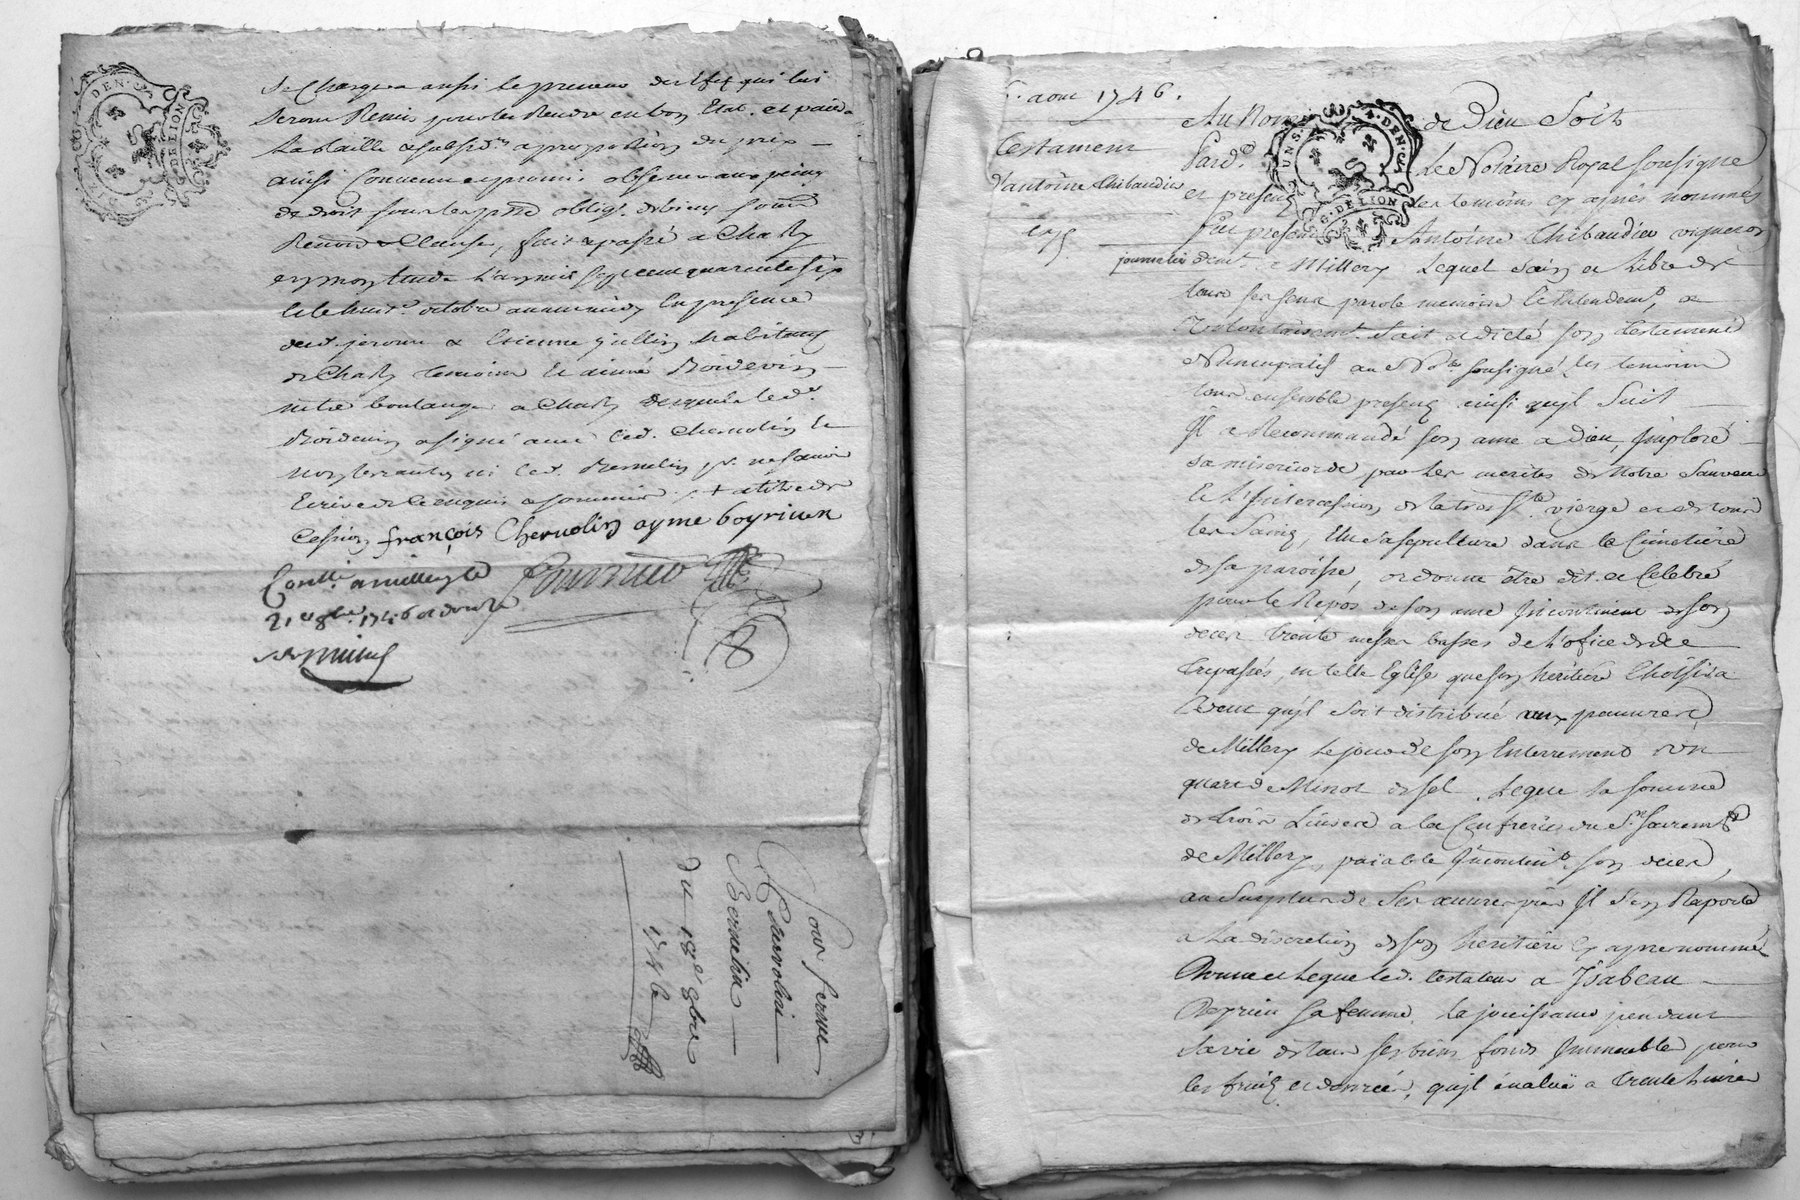 Se Chargera aussi le preneur des qui lui
Seront Remis pour les Rendre en bon Etat. et païera
La taille a proportion du prix
ainsi Convenu et promis observer aux peines
de droit sous les obligt. de biens
Renon. & Clauses, fait & passé a Charly
en mon Etude L'an mil sept cent quarente six
et le octobre avant midy En presence
de Jerome & Etienne Jullien habitans
de Charly temoins Et aimé Boivevin
mtre boulanger a Charly lequel led.
a signé avec led. Chervolin Et
non les autres ni led. pr. ne savoir
Ecrire de ce enquis & sommés + a titre de
Cession françois Chervolin ayme boyriven
Conllé. a millery le Fournier
21e 8bre. 1746
UN. S. 4. DEN.
G. DE LION
Pour ferme
Chervolin
Bernelin
Du 18e 8bre
1746
aout 1746.
Testament
d'antoine Thibaudier
Au Nom de Dieu Soit
Pard. Le Notaire Royal sousigné
et presens les temoins cy aprés nommés
fut present Antoine Thibaudier vigneron
journalier demt. a Millery Lequel Sain et Libre de
tous ses sens parole memoire Et Entendemt. a
Volontairemt. Fait & dicté son Testament
Nuncupatif au Nore. sousigné, les temoins
tous ensemble presens ainsi qu'jl Suit
Jl a Recommandé son ame a Dieu, Jmploré
sa misericorde par Les merites de Notre Sauveur
Et L'Jntercession de la tres Ste. vierge et de tous
les Saints, Elu sa sepulture dans le Cimetière
de sa paroisse, ordonne être dit et Celebré
pour le Repos de son ame Jncontinent de son
deces trente messes basses de L'ofice de
trepassés, en telle Eglise que son heritiere Choisira
Veut qu'jl soit distribué aux pauvres
de Millery Le jour de son Enterrement un
quart de Minot de sel, Legue la somme
de trois Livres a la Confrerie du St. Sacremt.
de Millery, païable Jncontint. son deces,
au Surplus de Ses œuvres pies Jl s'en Raporte
a La discretion de son heritiere cy apres nommée
Donne et Legue led. testateur a Jsabeau
sa femme, La jouissance pendant
Sa vie de tous ses biens fonds Jmmeubles pour
les fruits et denrées, qu'jl évaluë a trente Livres